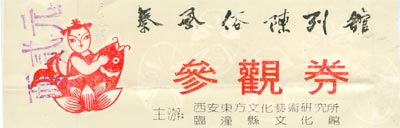 秦風俗陳列館
參觀券
主辦:西安東方文化藝術研究所
臨潼縣文化館
貳元